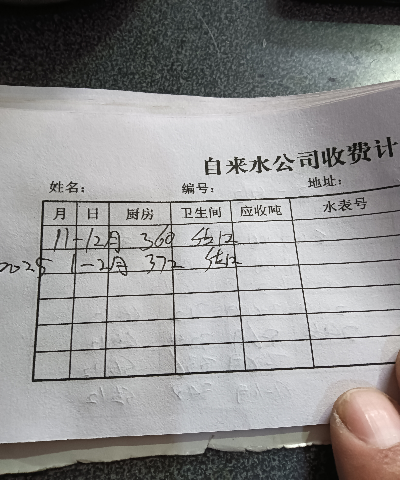 自来水公司收费计
姓名： 编号： 地址：
月 日 厨房 卫生间 应收吨 水表号
11-12月 360
2025 1-2月 372